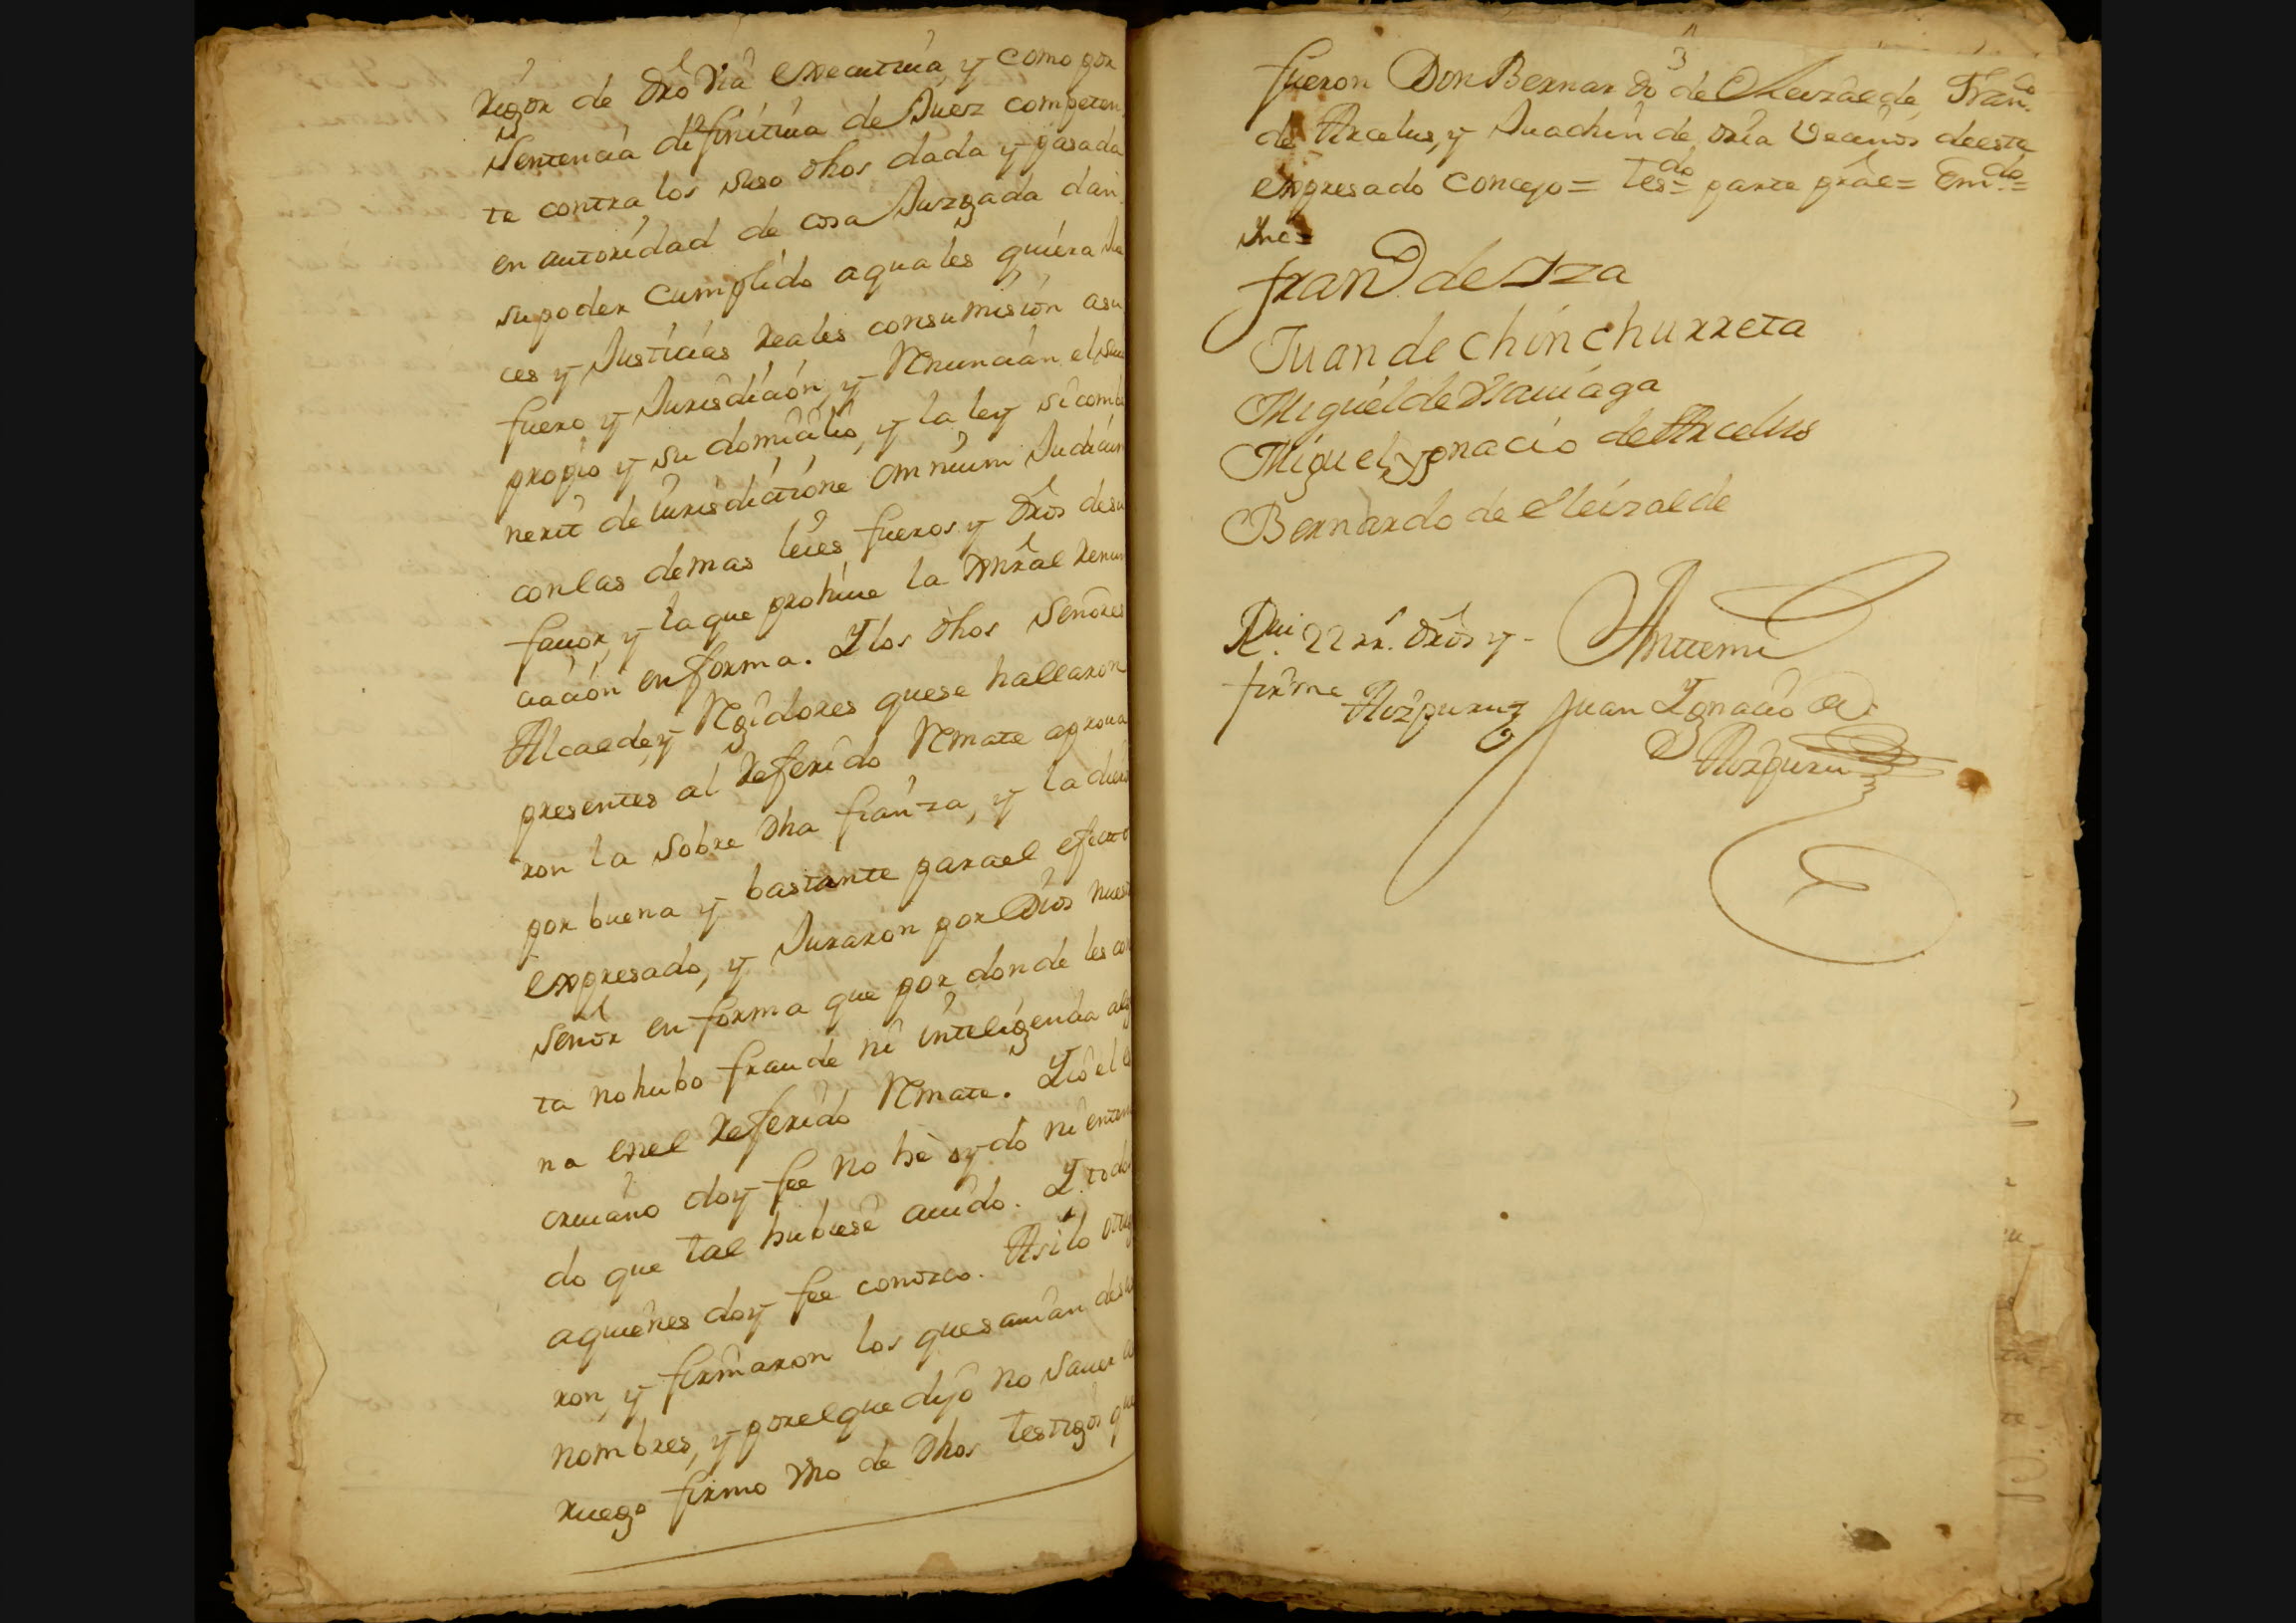 rigor de dro via executiua, y como por
Sentencia difinitiua de Juez competen
te contra los suso dhos dada y pasada
en autoridad de cosa Juzgada dan
su poder cumplido a quales quiera Jue
ces y Justicias reales con sumision a su
fuero y Jurisdicion, y renuncian el suio
propio y su domicilio, y la ley si combe
nerit de iurisdictione omnium Judicum
con las demas leies fueros y dros de su
fauor, y la que prohiue la gnral renun
ciacion en forma. Y los dhos Señores
Alcalde, y regidores que se hallaron
presentes al referido remate aproua
ron la sobre dha fianza, y la dieron
por buena y bastante para el efecto
expresado, y Juraron por Dios nuest
Señor en forma que por donde les cons
ta no hubo fraude ni inteligencia algu
na en el referido remate. Y io el es
criuano doy fee no he oydo ni enten
do que tal hubiese auido. Y todos
a quienes doy fee conozco. Asi lo otorg
ron, y firmaron los que sauian de sus
nombres, y por el que dijo no sauer a
ruego firmo vno de dhos testigos que
3
fueron Don Bernardo de Eleizalde, Fran.co
de Arcelus, y Juachin de oria Vecinos de este
expresado concejo = tes.do = parte prâl = Em.do =
Jne =
fran.co de Iza
Juan de Chinchurreta
Miguel de Arriaga
Miguel Ygnacio de Arcelus
Bernardo de Eleizalde
R.ui 22 rr.s dros y - Anttemi
firme Aizpuru Juan Ygnacio de
Aizpuru